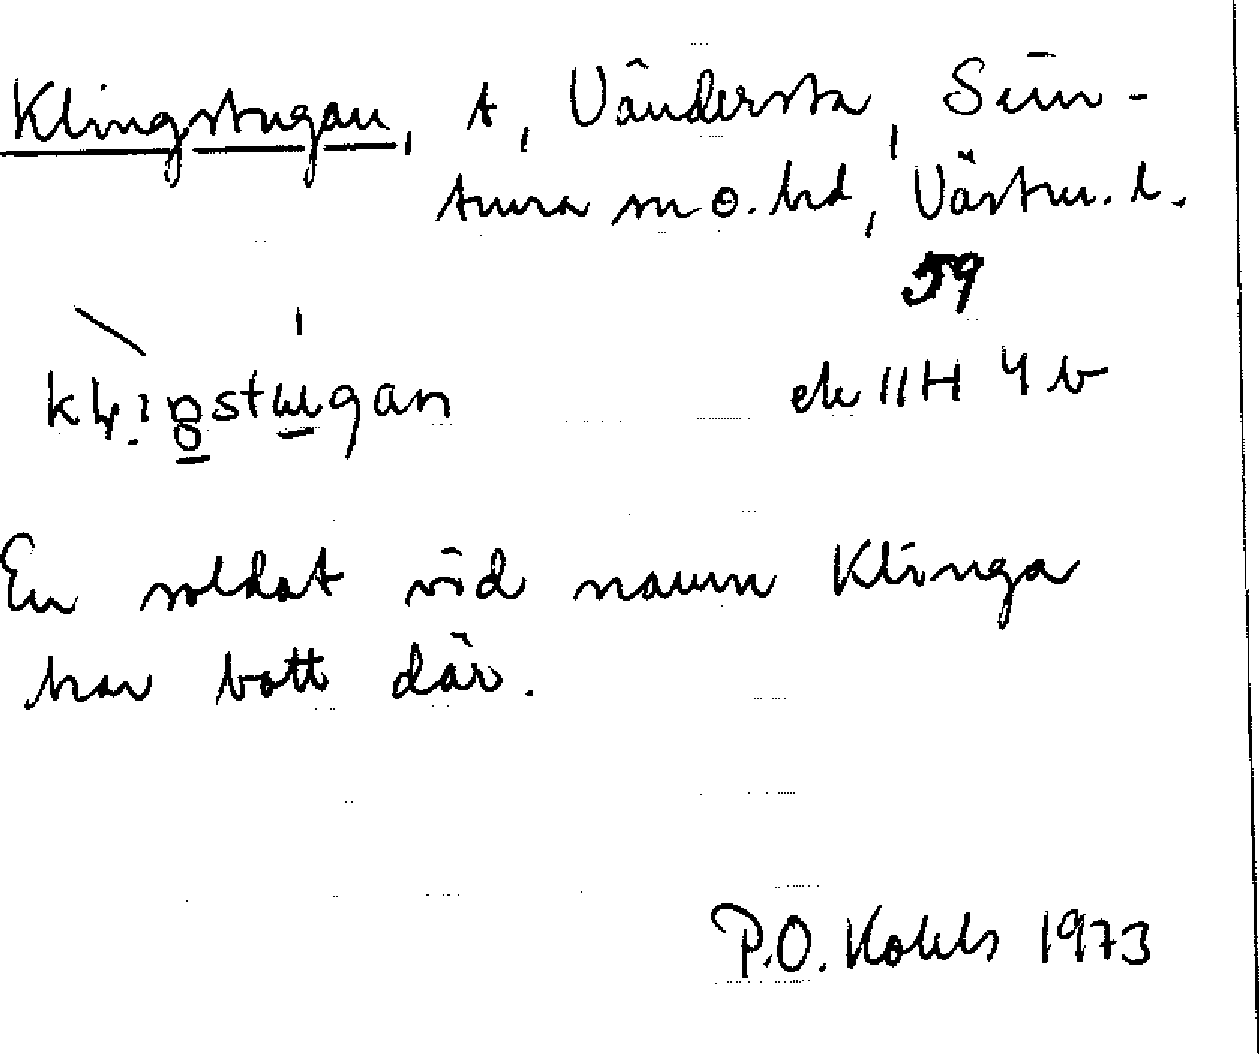 Klingstugan, t, Vändersta, Sim-
tuna sn o. hd, Västm. l.
59
ek 11H 4 b
En soldat vid namn Klinga
har bott där.
P.O. Kohls 1973